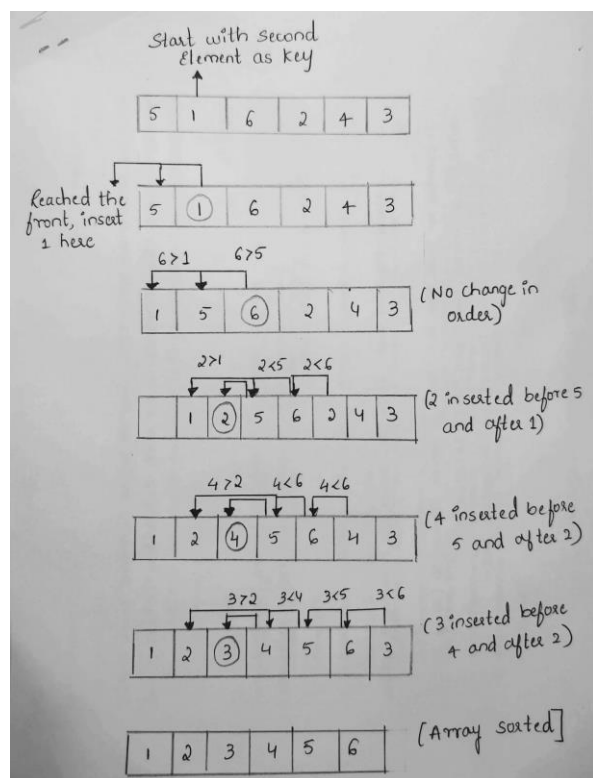 Start with second
Element as key
5 1 6 2 4 3
Reached the
front, insert
1 here
5 1 6 2 4 3
6>1 6>5
1 5 6 2 4 3
(No change in
order)
2>1 2<5 2<6
1 2 5 6 2 4 3
(2 inserted before 5
and after 1)
4>2 4<6 4<6
1 2 4 5 6 4 3
(4 inserted before
5 and after 2)
3>2 3<4 3<5 3<6
1 2 3 4 5 6 3
(3 inserted before
4 and after 2)
1 2 3 4 5 6
[Array sorted]